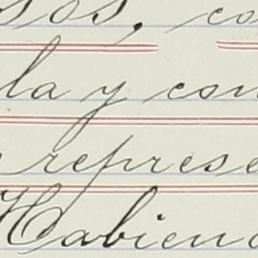 sos, co
la y con
represe
Habiend